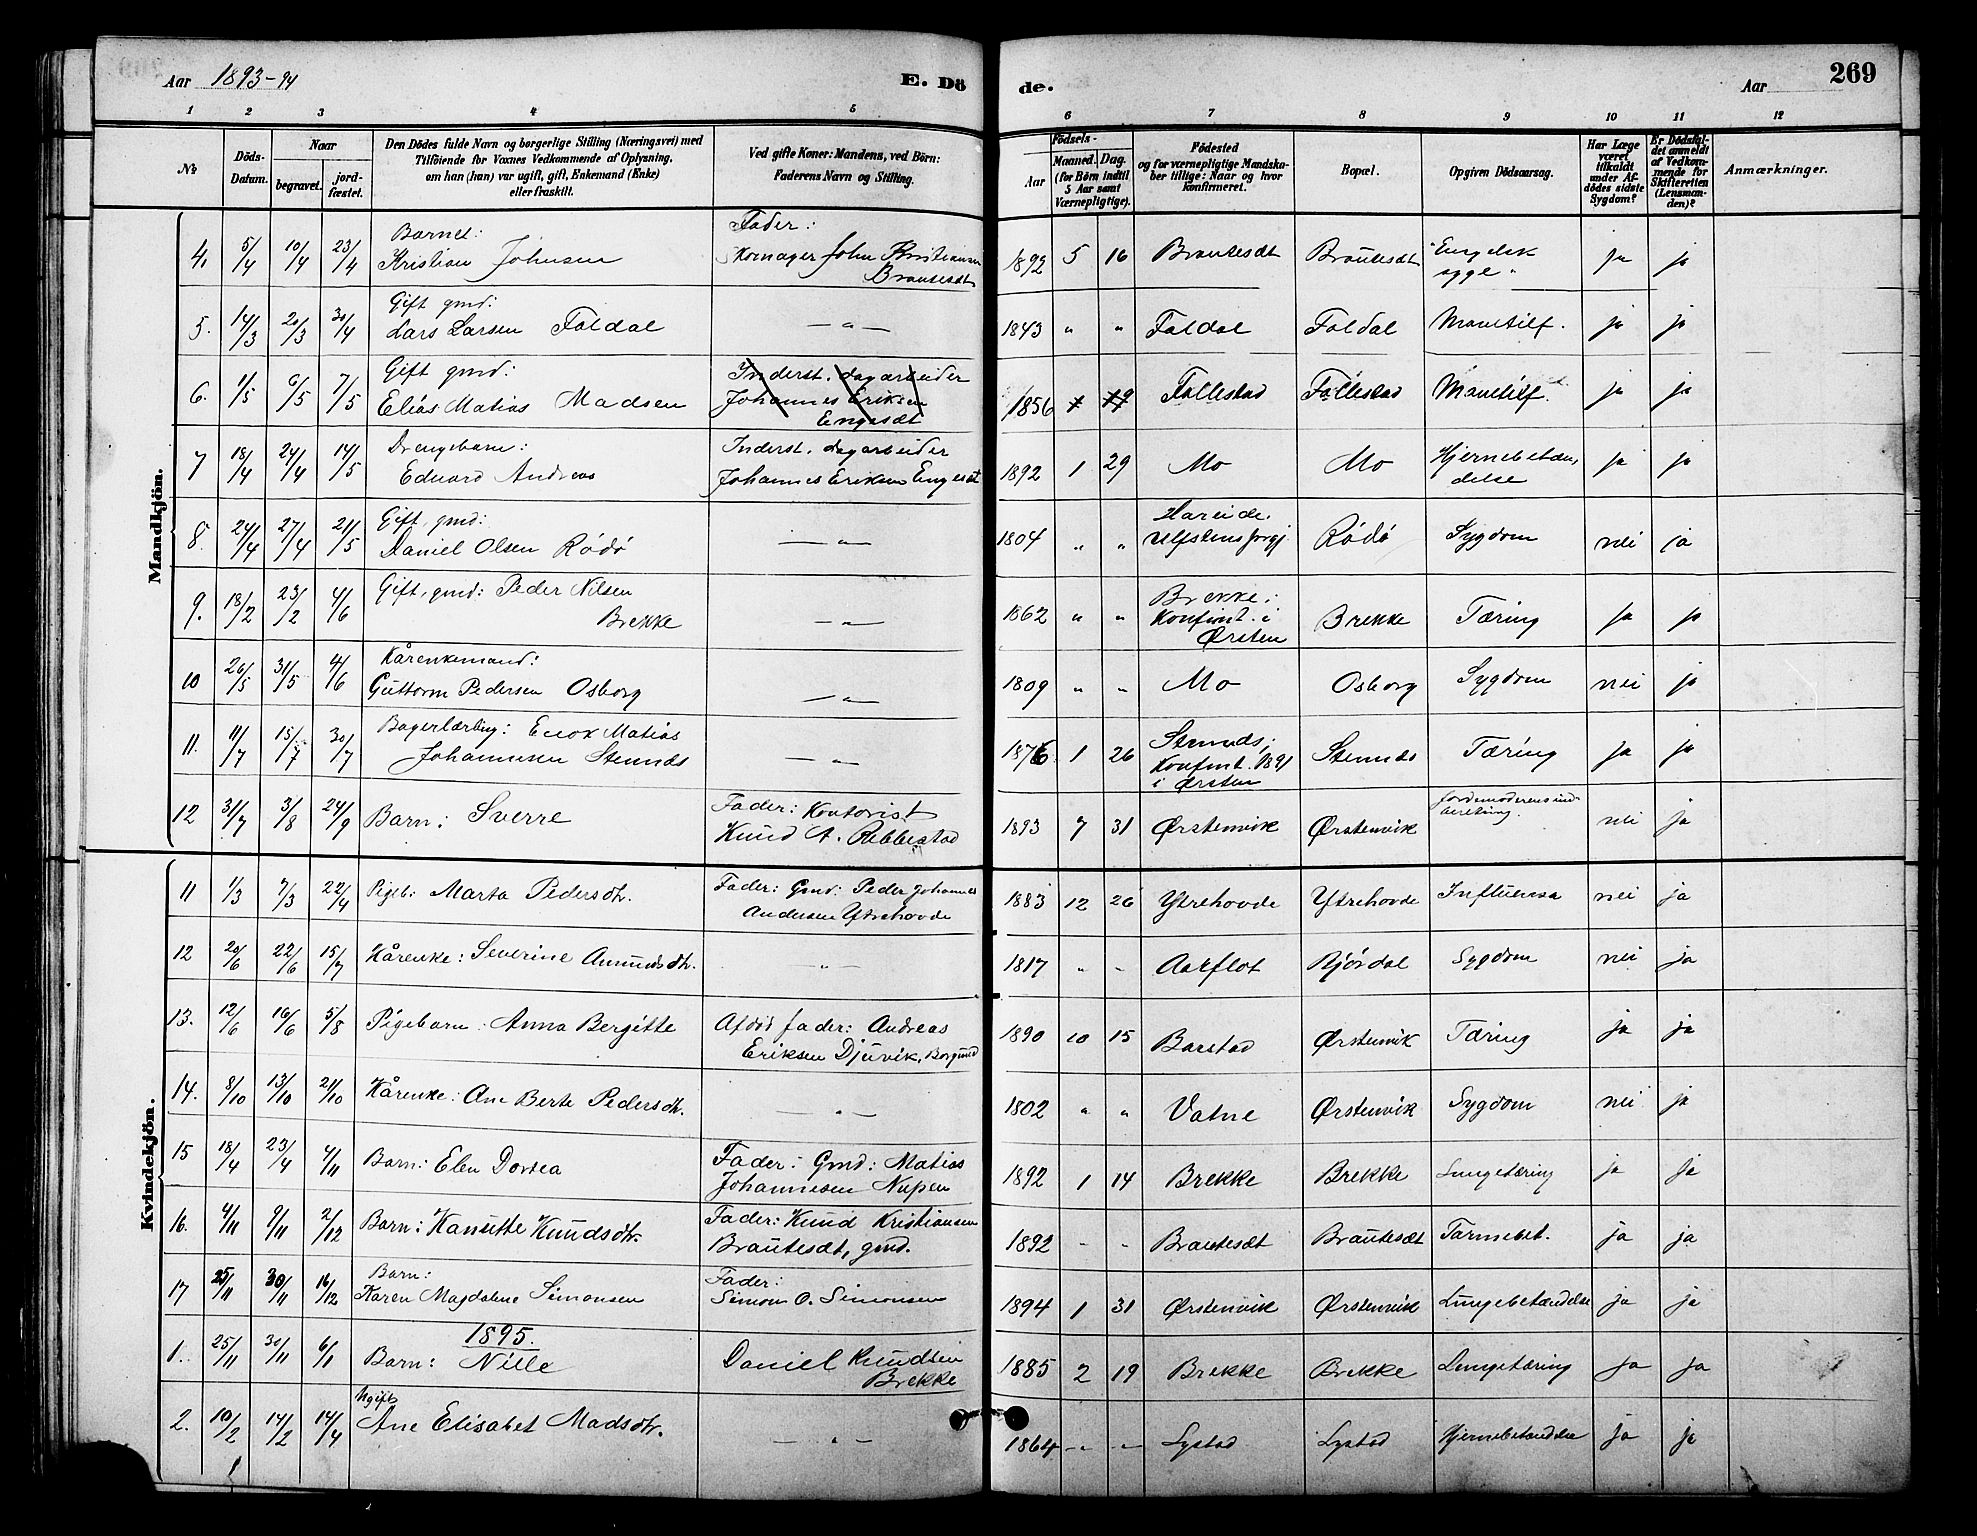 Aar 1893-94
E. Dö
de.
Aar
269
1 2 3 4 5 6 7 8 9 10 11 12
No
Döds-
Datum.
Naar
begravet.
jord-
fæstet.
Den Dödes fulde Navn og borgerlige Stilling (Næringsvei) med
Tilföiende for Voxnes Vedkommende af Oplysning,
om han (hun) var ugift, gift, Enkemand (Enke)
eller fraskilt.
Ved gifte Koner: Mandens, ved Börn:
Faderens Navn og Stilling.
Födsels-
Aar
Maaned. Dag.
(for Börn indtil
5 Aar samt
Værnepligtige).
Födested
og for værnepligtige Mandska-
ber tillige: Naar og hvor
konfirmeret.
Bopæl.
Opgiven Dödsaarsag.
Har Læge
været
tilkaldt
under Af-
dödes sidste
Sygdom?
Er Dödsfal-
det anmeldt
af Vedkom-
mende for
Skifteretten
(Lensman-
den)?
Anmærkninger.
Mandkjön.
4. 5/4 10/4 23/4 Barnet: Fader:
Kristian Johnsen John Kristiansen
Brautesdt
1892 5 16 Brautesdt Brautesdt Engelsk ja ja
syge
5. 14/3 20/3 30/4 Gift gmd:
Lars Larsen Foldal — " — 1843 " " Foldal Foldal Mavetilf. ja ja
6. 1/5 6/5 7/5 Gift gmd: Inderst. dagarbeider
Elias Matias Madsen Johannes Eriksen
Engesdt
1856 Follestad Follestad Mavetilf. ja ja
7 18/4 24/4 14/5 Drengebarn: Inderst. dagarbeider
Eduard Andreas Johannes Eriksen Engesdt
1892 1 29 Mo Mo Hjernebetæn- ja ja
delse
8. 24/4 27/4 21/5 Gift, gmd:
Daniel Olsen Rödö — " —
1804 " " Hareide. Rödö Sygdom nei ja
9. 18/2 23/2 4/6 Gift, gmd: Peder Nilsen
Brekke — " —
1862 " " Brekke; Brekke Tæring ja ja
Konfirmt. i
Ørsten
10 26/5 31/5 4/6 Kårenkemand:
Guttorm Pedersen Osborg — " — 1809 " " Mo Osborg Sygdom nei ja
11. 11/7 15/7 30/7 Bagerlærling: Enok Matias
Johannesen Stennds — " —
1876 1 26 Stennds; Stennds Tæring ja ja
Konfmt. 1891
i Ørsten
12 31/7 3/8 24/9 Barn: Sverre Fader: Kontorist
Knud A. Rebbestad
1893 7 31 Ørstenvik Ørstenvik Jordemoderens ind- nei ja
beretning.
Kvindekjön.
11 1/3 7/3 22/4 Pigeb: Marta Pedersdtr. Fader: Gmd: Peder Johannes
Andersen Ytrehovde
1883 12 26 Ytrehovde Ytrehovde Influensa nei ja
12 20/6 22/6 15/7 Kårenke: Severine Amundsdtr. — " — 1817 " " Aarflot Björdal Sygdom nei ja
13. 12/6 16/6 5/8 Pigebarn: Anna Bergitte Afdöd fader: Andreas
Eriksen Djuvik, Borgund
1890 10 15 Barstad Ørstenvik Tæring ja ja
14. 8/10 13/10 21/10 Kårenke: Ane Berte Pedersdtr. — " — 1802 " " Vatne Ørstenvik Sygdom nei ja
15 18/4 23/4 4/11 Barn: Elen Dortea Fader: Gmd: Matias
Johannesen Nupen
1892 1 14 Brekke Brekke Lungetæring ja ja
16. 4/11 9/11 2/12 Barn: Kanutte Knudsdtr. Fader: Knud Kristiansen
Brautesæt, gmd.
1892 - - Brautesæt Brautesæt Tarmebet. ja ja
17 25/11 30/11 16/12 Barn: Fader:
Karen Magdalene Simonsen Simon O. Simonsen
1894 1 31 Ørstenvik Ørstenvik Lungebetændelse ja ja
1895.
1. 25/11 30/11 6/1 Barn: Nille Daniel Knudsen
Brekke
1885 2 19 Brekke Brekke Lungetæring ja ja
2. 10/2 14/2 14/4 Ugift
Ane Elisabet Madsdtr. — " — 1864 - " - - " - Lystad Lystad Hjernebetændelse ja ja